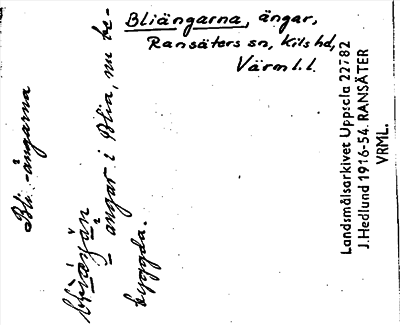 Bliängarna, ängar,
Ransäters sn, Kils hd,
Värml. l.
Bli-ängarna
ängar i Blia, nu be-
byggda.
Landsmålsarkivet Uppsala 22782
J. Hedlund 1916-54. RANSÄTER
VRML.